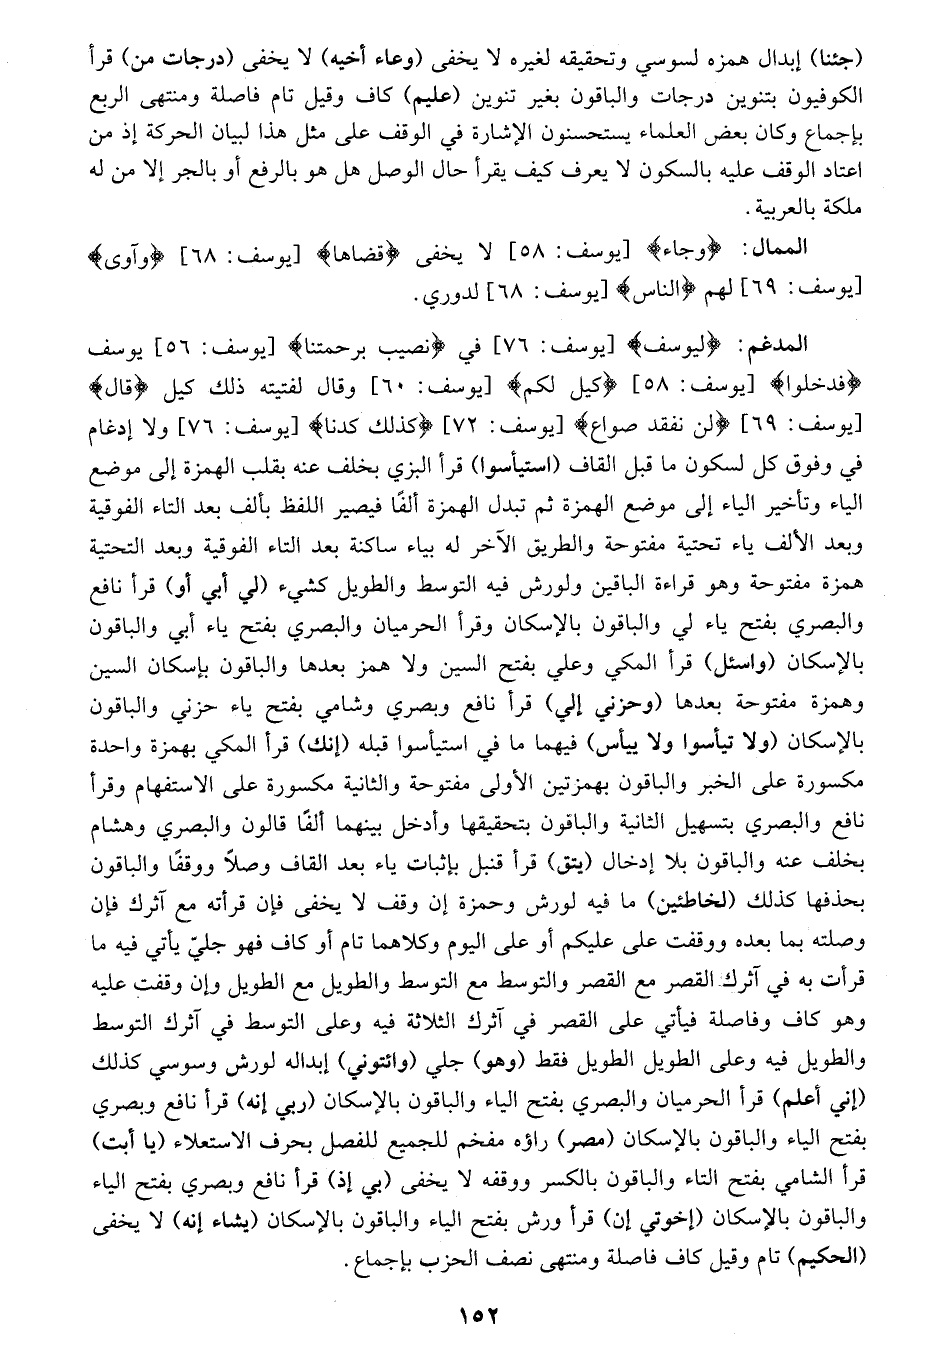 (جئنا) إبدال همزه لسوسي وتحقيقه لغيره لا يخفى (وعاء أخيه) لا يخفى (درجات من) قرأ
الكوفيون بتنوين درجات والباقون بغير تنوين (عليم) كاف وقيل تام فاصلة ومنتهى الربع
بإجماع وكان بعض العلماء يستحسنون الإشارة في الوقف على مثل هذا لبيان الحركة إذ من
اعتاد الوقف عليه بالسكون لا يعرف كيف يقرأ حال الوصل هل هو بالرفع أو بالجر إلا من له
ملكة بالعربية.
الممال: ﴿وجاء﴾ [يوسف: ٥٨] لا يخفى ﴿قضاها﴾ [يوسف: ٦٨] ﴿وآوى﴾
[يوسف: ٦٩] لهم ﴿الناس﴾ [يوسف: ٦٨] لدوري.
المدغم: ﴿ليوسف﴾ [يوسف: ٧٦] في ﴿نصيب برحمتنا﴾ [يوسف: ٥٦] يوسف
﴿فدخلوا﴾ [يوسف: ٥٨] ﴿كيل لكم﴾ [يوسف: ٦٠] وقال لفتيته ذلك كيل ﴿قال﴾
[يوسف: ٦٩] ﴿لن نفقد صواع﴾ [يوسف: ٧٢] ﴿كذلك كدنا﴾ [يوسف: ٧٦] ولا إدغام
في وفوق كل لسكون ما قبل القاف (استيأسوا) قرأ البزي بخلف عنه بقلب الهمزة إلى موضع
الياء وتأخير الياء إلى موضع الهمزة ثم تبدل الهمزة ألفًا فيصير اللفظ بألف بعد التاء الفوقية
وبعد الألف ياء تحتية مفتوحة والطريق الآخر له بياء ساكنة بعد التاء الفوقية وبعد التحتية
همزة مفتوحة وهو قراءة الباقين ولورش فيه التوسط والطويل كشيء (لي أبي أو) قرأ نافع
والبصري بفتح ياء لي والباقون بالإسكان وقرأ الحرميان والبصري بفتح ياء أبي والباقون
بالإسكان (واسئل) قرأ المكي وعلي بفتح السين ولا همز بعدها والباقون بإسكان السين
وهمزة مفتوحة بعدها (وحزني إلي) قرأ نافع وبصري وشامي بفتح ياء حزني والباقون
بالإسكان (ولا تيأسوا ولا ييأس) فيهما ما في استيأسوا قبله (إنك) قرأ المكي بهمزة واحدة
مكسورة على الخبر والباقون بهمزتين الأولى مفتوحة والثانية مكسورة على الاستفهام وقرأ
نافع والبصري بتسهيل الثانية والباقون بتحقيقها وأدخل بينهما ألفًا قالون والبصري وهشام
بخلف عنه والباقون بلا إدخال (يتق) قرأ قنبل بإثبات ياء بعد القاف وصلاً ووقفًا والباقون
بحذفها كذلك (لخاطئين) ما فيه لورش وحمزة إن وقف لا يخفى فإن قرأته مع آثرك فإن
وصلته بما بعده ووقفت على عليكم أو على اليوم وكلاهما تام أو كاف فهو جليّ يأتي فيه ما
قرأت به في آثرك القصر مع القصر والتوسط مع التوسط والطويل مع الطويل وإن وقفت عليه
وهو كاف وفاصلة فيأتي على القصر في آثرك الثلاثة فيه وعلى التوسط في آثرك التوسط
والطويل فيه وعلى الطويل الطويل فقط (وهو) جلي (وائتوني) إبداله لورش وسوسي كذلك
(إني أعلم) قرأ الحرميان والبصري بفتح الياء والباقون بالإسكان (ربي إنه) قرأ نافع وبصري
بفتح الياء والباقون بالإسكان (مصر) راؤه مفخم للجميع للفصل بحرف الاستعلاء (يا أبت)
قرأ الشامي بفتح التاء والباقون بالكسر ووقفه لا يخفى (بي إذ) قرأ نافع وبصري بفتح الياء
والباقون بالإسكان (إخوتي إن) قرأ ورش بفتح الياء والباقون بالإسكان (يشاء إنه) لا يخفى
(الحكيم) تام وقيل كاف فاصلة ومنتهى نصف الحزب بإجماع.
١٥٢